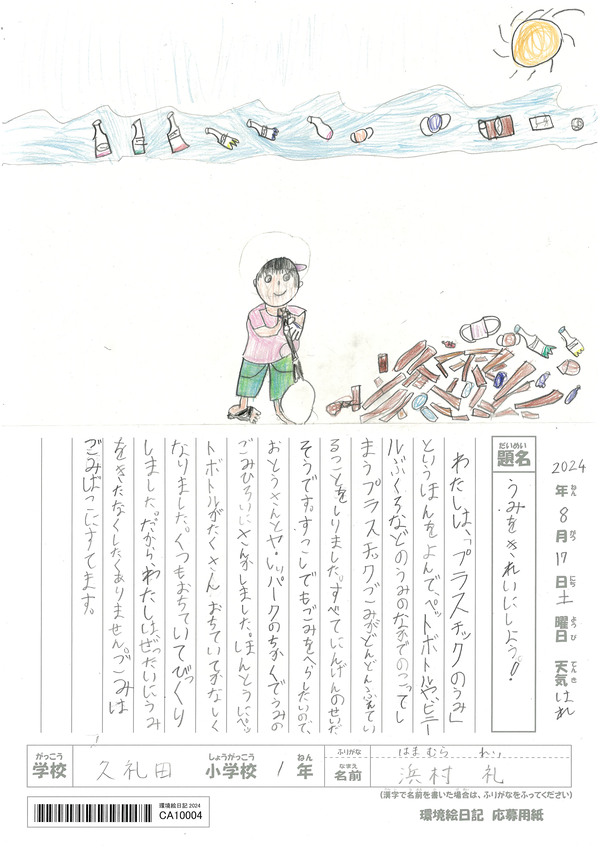 2024年8月17日土曜日 天気はれ
ねん がつ にち ようび てんき
だいめい
題名
うみをきれいにしよう!!
わたしは、「プラスチックのうみ」
というほんをよんで、ペットボトルやビニー
ルぶくろなどのうみのなかでのこってし
まうプラスチックごみがどんどんふえてい
ることをしりました。すべてにんげんのせいだ
そうです。すこしでもごみをへらしたいので、
おとうさんとヤ・シィパークのちかくでうみの
ごみひろいにさんかしました。ほんとうにペッ
トボトルがたくさんおちていてかなしく
なりました。くつもおちていてびっくり
しました。だから、わたしはぜったいにうみ
をきたなくしたくありません。ごみは
ごみばこにすてます。
がっこう しょうがっこう ねん
学校 久礼田 小学校 1年
ふりがな はまむら れい
なまえ
名前 浜村 礼
(漢字で名前を書いた場合は、ふりがなをふってください)
環境絵日記 2024
CA10004
環境絵日記 応募用紙